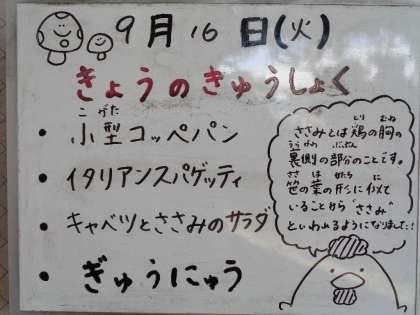 9月 16 日(火)
きょうのきゅうしょく
こがた
・小型コッペパン
・イタリアンスパゲッティ
・キャベツとささみのサラダ
・ぎゅうにゅう
とり むね
ささみとは鶏の胸の
うらがわ ぶぶん
裏側の部分のことです。
ささ は かたち に
笹の葉の形に似て
いることから"ささみ"
といわれるようになりました!